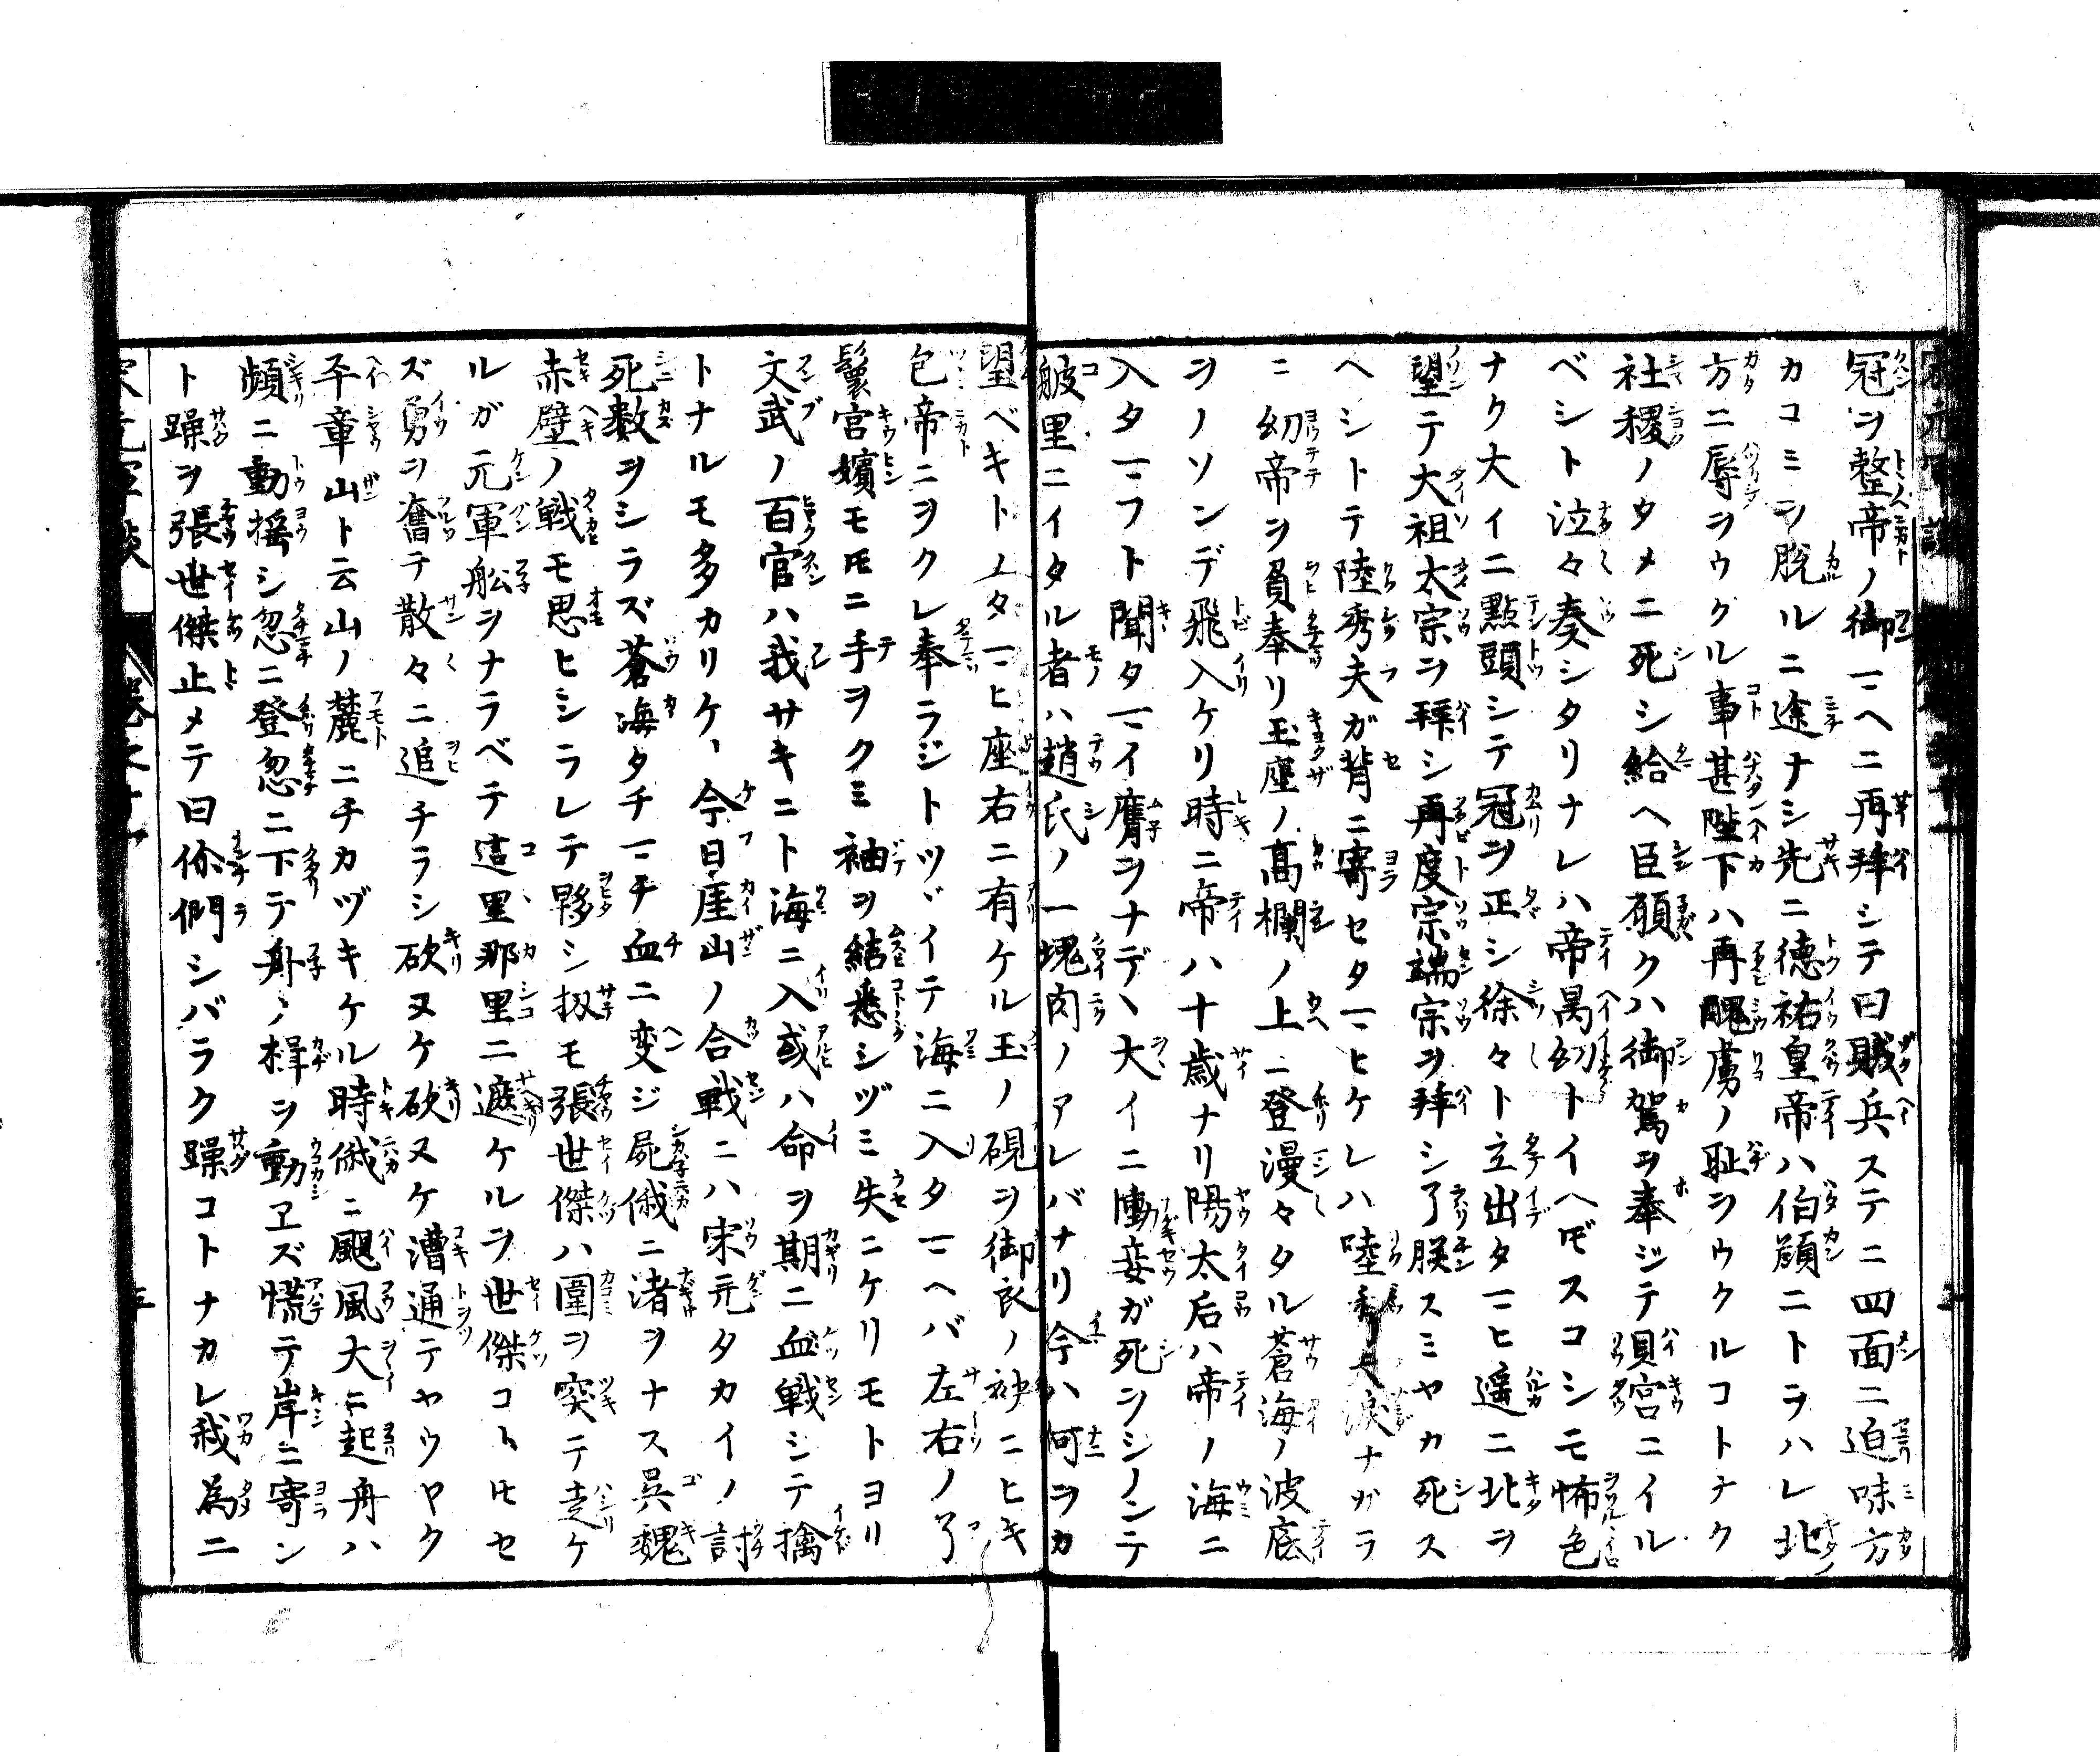 冠ヲ整帝ノ御マヘニ再拜シテ曰賊兵ステニ四面ニ迫味方
カコミヲ脱ルニ途ナシ先ニ德祐皇帝ハ伯顔ニトラハレ北
方ニ辱ヲウクル事甚陛下ハ再醜虜ノ耻ヲウクルコトナク
社稷ノタメニ死シ給ヘ臣願クハ御駕ヲ奉ジテ貝宮ニイル
ベシト泣々奏シタリナレハ帝昺幼トイヘ𪜈スコシモ怖色
ナク大イニ點頭シテ冠ヲ正シ徐々ト立出タマヒ遥ニ北ヲ
望テ大祖太宗ヲ拜シ再度宗端宗ヲ拜シ了朕スミヤカ死ス
ヘシトテ陸秀夫ガ背ニ寄セタマヒケレハ陸秀夫涙ナガラ
ニ幼帝ヲ負奉リ玉座ノ高欄ノ上ニ登漫々タル蒼海ノ波底
ヲノソンデ飛入ケリ時ニ帝ハ十歳ナリ陽太后ハ帝ノ海ニ
入タマフト聞タマイ膺ヲナデヽ大イニ慟妾ガ死ヲシノンテ
艆里ニイタル者ハ趙氏ノ一塊肉ノアレバナリ今ハ何ヲカ
望ベキトノタマヒ座右ニ有ケル玉ノ硯ヲ御衣ノ袂ニヒキ
包帝ニヲクレ奉ラジトツヾイテ海ニ入タマヘバ左右ノ了
鬟宮嬪モ𪜈ニ手ヲクミ袖ヲ結悉シヅミ失ニケリモトヨリ
文武ノ百官ハ我サキニト海ニ入或ハ命ヲ期ニ血戦シテ擒
トナルモ多カリケヽ今日崖山ノ合戰ニハ宋元タカイノ討
死数ヲシラズ蒼海タチマチ血ニ变ジ屍俄ニ渚ヲナス吳魏
赤壁ノ戰モ思ヒシラレテ夥シ扨モ張世傑ハ圍ヲ突テ走ケ
ルガ元軍舩ヲナラベテ這里那里ニ遮ケルヲ世傑コト𪜈セ
ズ勇ヲ奮テ散々ニ追チラシ砍ヌケ砍ヌケ漕通テヤウヤク
平章山ト云山ノ麓ニチカヅキケル時俄ニ颶風大ニ起舟ハ
頻ニ動揺シ忽ニ登忽ニ下テ舟ノ楫ヲ動ヱズ慌テ岸ニ寄ン
ト躁ヲ張世傑止メテ曰你們シバラク躁コトナカレ我為ニ